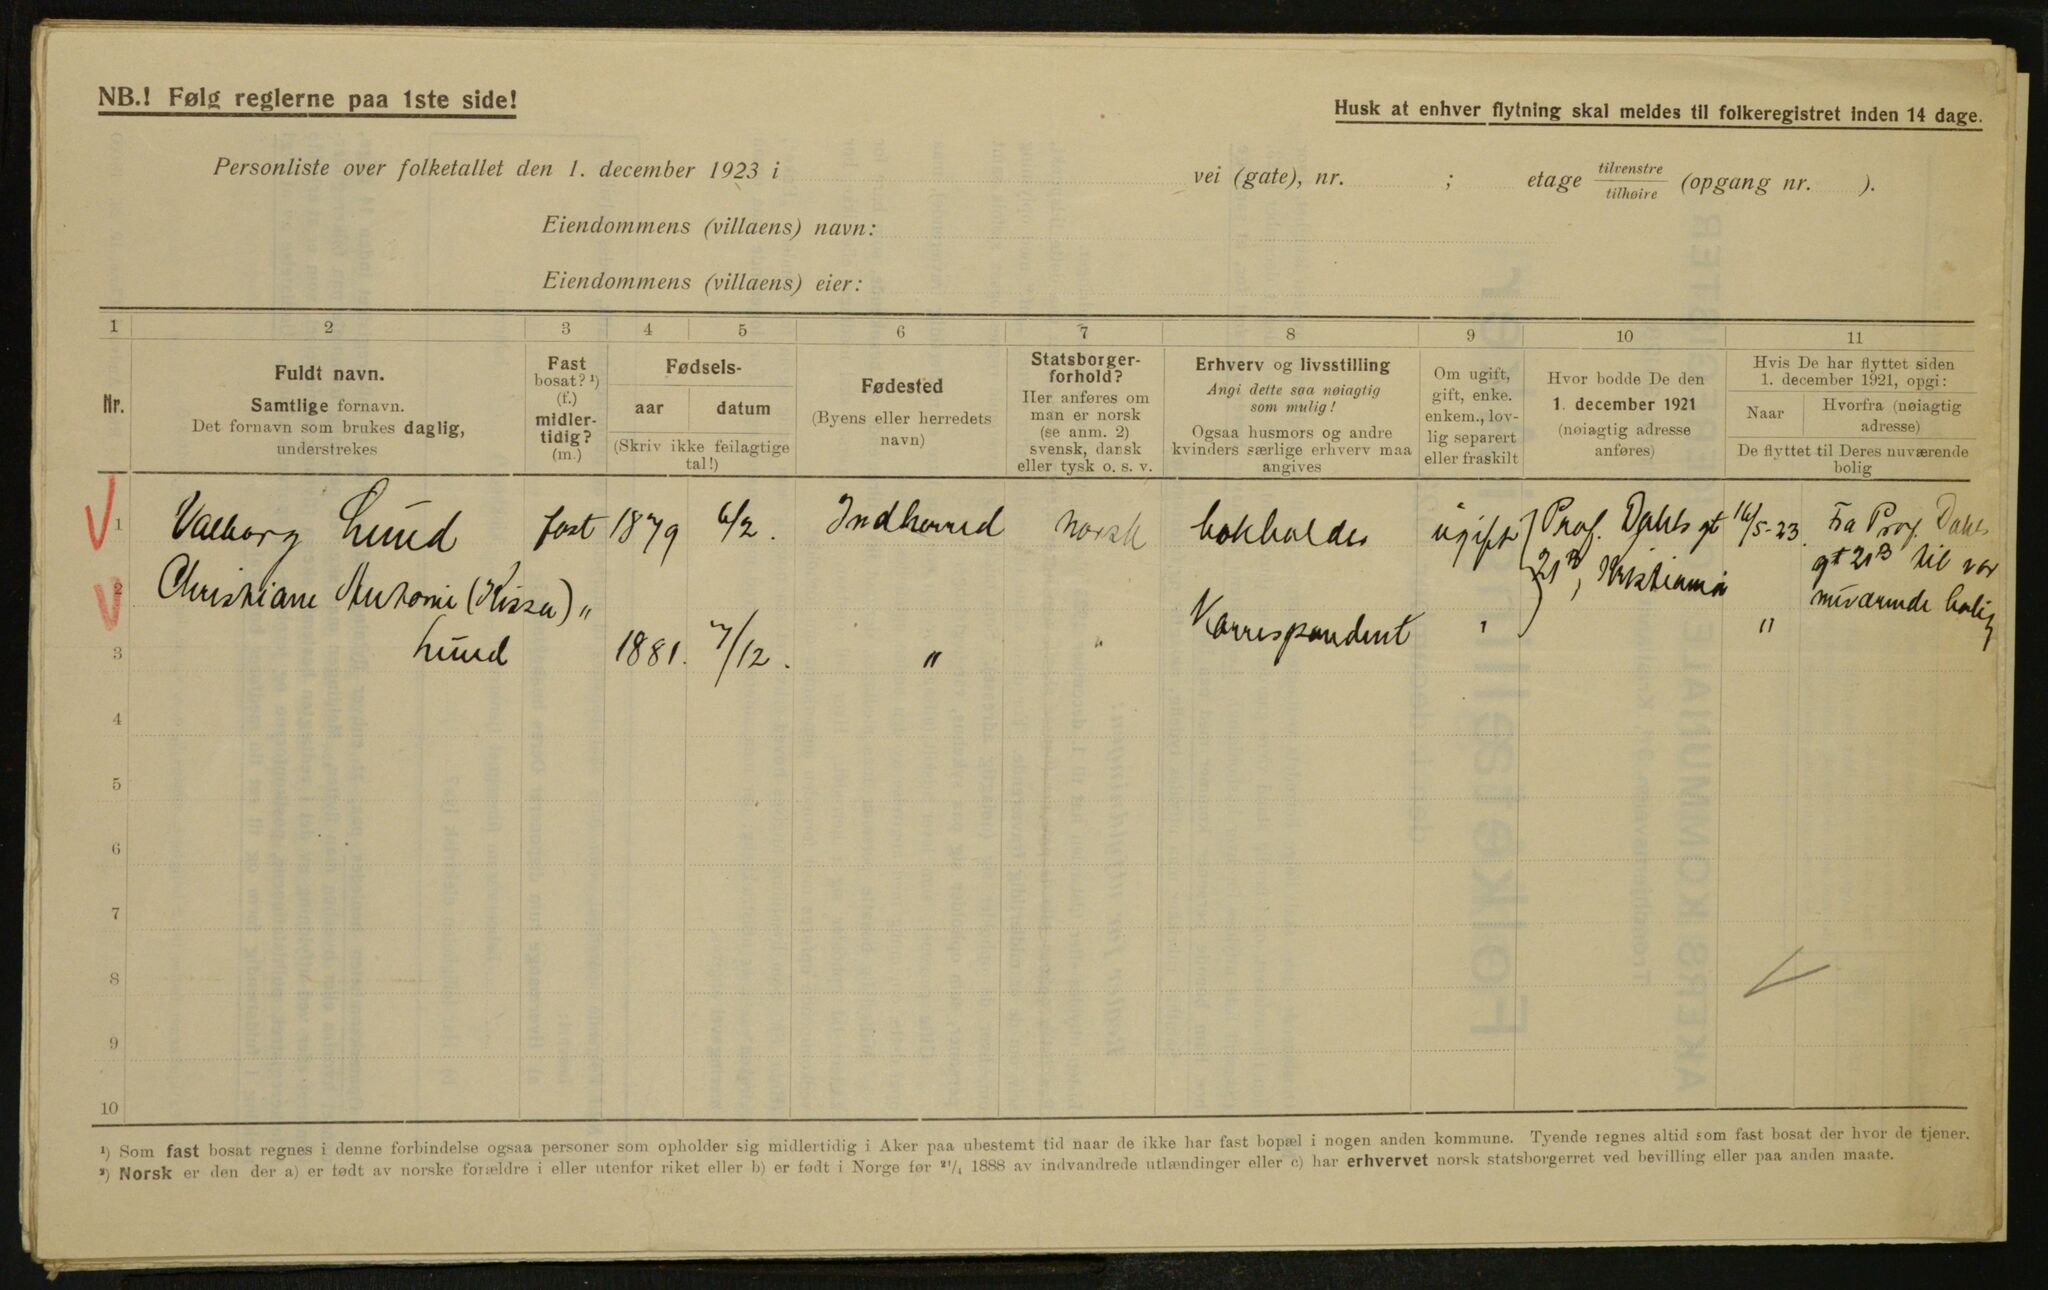 NB.! Følg reglerne paa 1ste side!
Husk at enhver flytning skal meldes til folkeregistret inden 14 dage.
Personliste over folketallet den 1. december 1923 i vei (gate), nr. ; etage tilvenstre/tilhøire (opgang nr. ).
Eiendommens (villaens) navn:
Eiendommens (villaens) eier:
1 2 3 4 5 6 7 8 9 10 11
Nr.
Fuldt navn.
Samtlige fornavn.
Det fornavn som brukes daglig,
understrekes
Fast
bosat? ¹)
(f.)
midler-
tidig?
(m.)
Fødsels-
aar datum
(Skriv ikke feilagtige
tal!)
Fødested
(Byens eller herredets
navn)
Statsborger-
forhold?
Her anføres om
man er norsk
(se anm. 2)
svensk, dansk
eller tysk o. s. v.
Erhverv og livsstilling
Angi dette saa nøiagtig
som mulig!
Ogsaa husmors og andre
kvinders særlige erhverv maa
angives
Om ugift,
gift, enke.
enkem., lov-
lig separert
eller fraskilt
Hvor bodde De den
1. december 1921
(nøiagtig adresse
anføres)
Hvis De har flyttet siden
1. december 1921, opgi:
Naar
Hvorfra (nøiagtig
adresse)
De flyttet til Deres nuværende
bolig
1 Valborg Lund fast 1879 6/2. Indherred norsk bokholder ugift Prof. Dahls gt 16/5-23. Fra Prof. Dahls
21B, Kristiania gt 21B til vor
2 Christiane Antonie (Kissa) " nuværende bolig
3 Lund 1881. 7/12. " " Korrespondent " "
4
5
6
7
8
9
10
¹) Som fast bosat regnes i denne forbindelse ogsaa personer som opholder sig midlertidig i Aker paa ubestemt tid naar de ikke har fast bopæl i nogen anden kommune. Tyende regnes altid som fast bosat der hvor de tjener.
²) Norsk er den der a) er født av norske forældre i eller utenfor riket eller b) er født i Norge før 21/4 1888 av indvandrede utlændinger eller c) har erhvervet norsk statsborgerret ved bevilling eller paa anden maate.